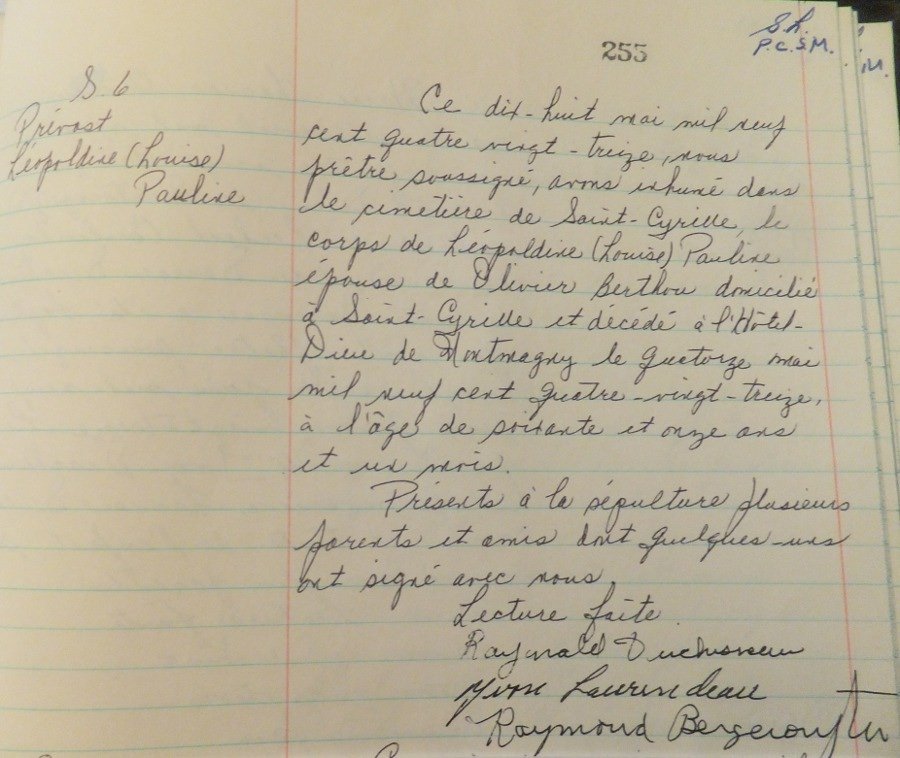 255
S.L.
P.C.S.M.
S. 6
Prévost
Léopoldine (Louise)
Pauline
Ce dix-huit mai mil neuf
cent quatre vingt-treize, nous
prêtre soussigné, avons inhumé dans
le cimetière de Saint-Cyrille, le
corps de Léopoldine (Louise) Pauline
épouse de Olivier Berthou domicilié
à Saint-Cyrille et décédé à l'Hôtel-
Dieu de Montmagny le quatorze mai
mil neuf cent quatre-vingt-treize,
à l'âge de soixante et onze ans
et un mois.
Présents à la sépulture plusieurs
parents et amis dont quelques-uns
ont signé avec nous.
Lecture faite.
Raynald
Yvon Laurendeau
Raymond Bergeron